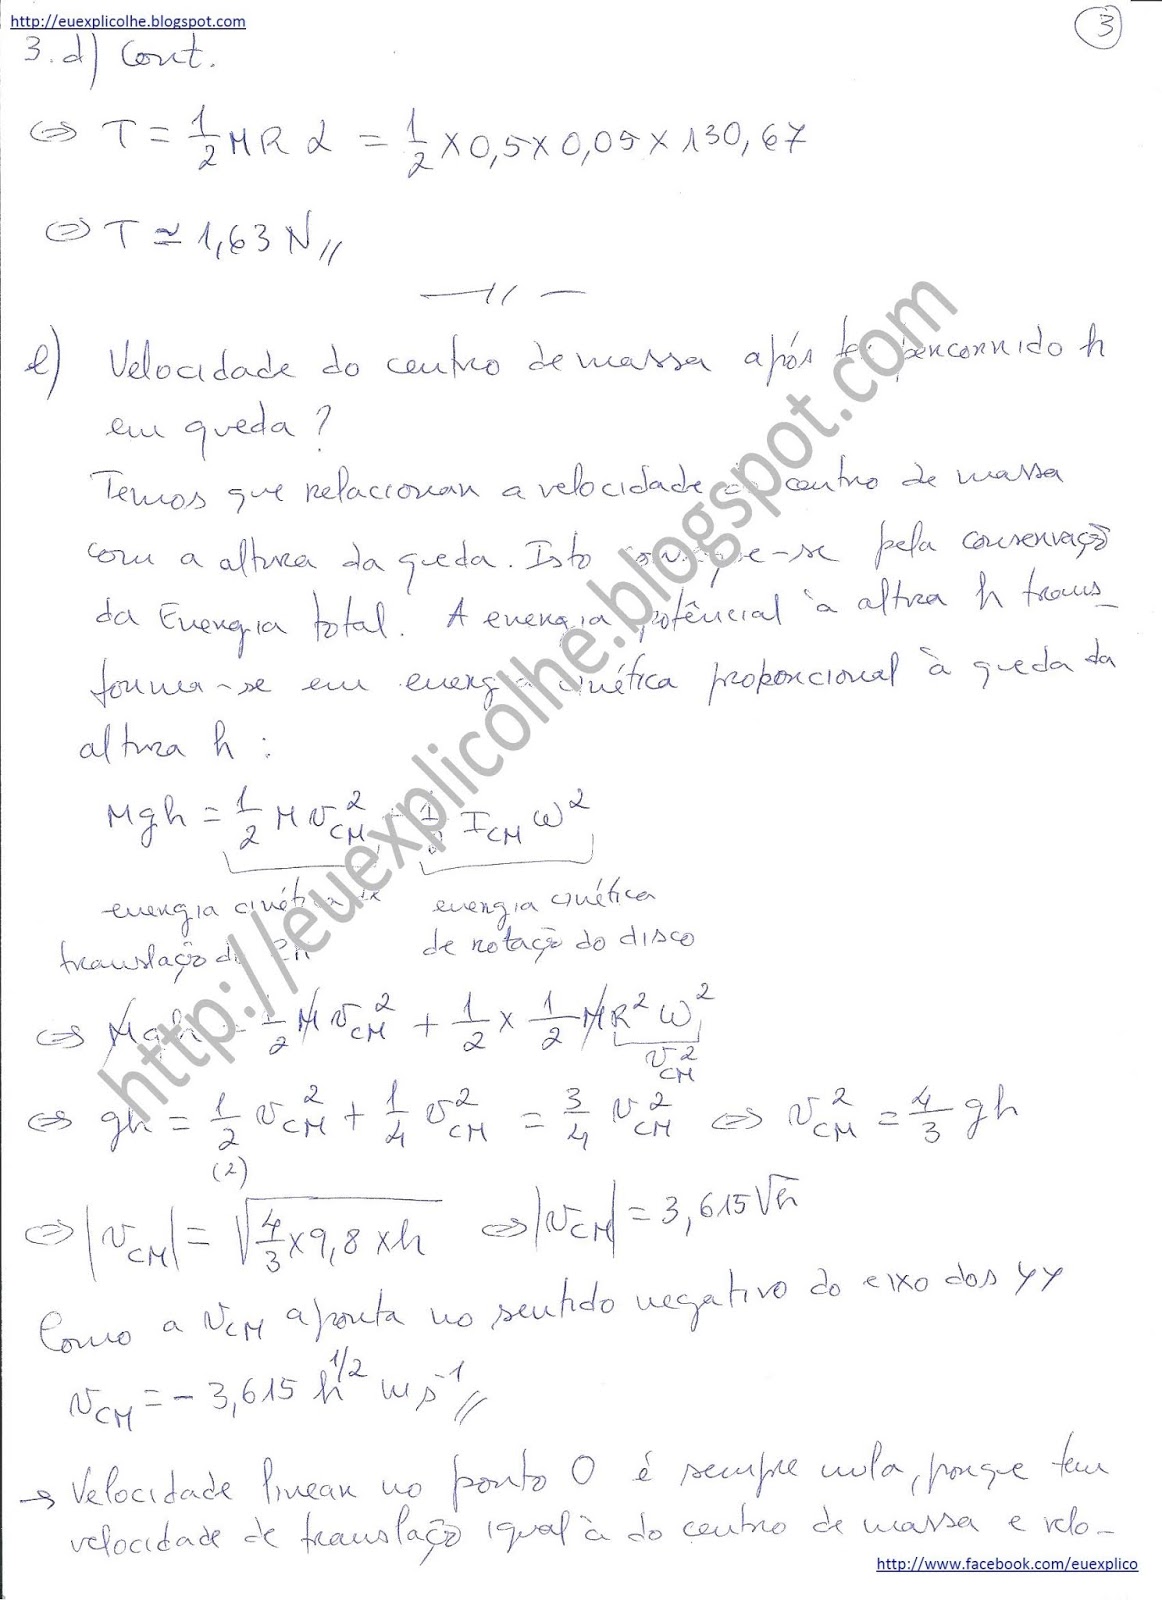 http://euexplicolhe.blogspot.com
3
3.d) Cont.
⇔ T = 1/2 M R α = 1/2 × 0,5 × 0,05 × 130,67
⇔ T ≃ 1,63 N //
— // —
e) Velocidade do centro de massa após percorrido h
em queda?
Temos que relacionar a velocidade centro de massa
com a altura da queda. Isto -se pela conservação
da Energia total. A energia potêncial à altura h trans-
forma-se em energ cinética proporcional à queda da
altura h :
Mgh = 1/2 M v_CM^2 1/2 I_CM ω^2
energia cinét energia cinética
translação d de rotação do disco
⇔ Mgh = 1/2 M v_CM^2 + 1/2 × 1/2 M R^2 ω^2
v_CM^2
⇔ gh = 1/2 v_CM^2 + 1/4 v_CM^2 = 3/4 v_CM^2 ⇔ v_CM^2 = 4/3 gh
(2)
⇔ |v_CM| = √(4/3 × 9,8 × h) ⇔ |v_CM| = 3,615 √h
Como a v_CM aponta no sentido negativo do eixo dos yy
v_CM = - 3,615 h^1/2 m s^-1 //
→ Velocidade linear no ponto O é sempre nula, porque tem
velocidade de translação igual à do centro de massa e velo-
http://www.facebook.com/euexplico
http://euexplicolhe.blogspot.com